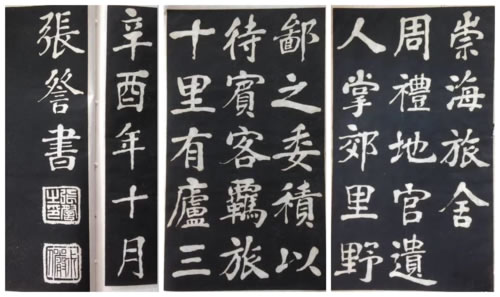 崇海旅舍
周禮地官遺
人掌郊里野
鄙之委積以
待賓客羈旅
十里有廬三
辛酉年十月
張詧書